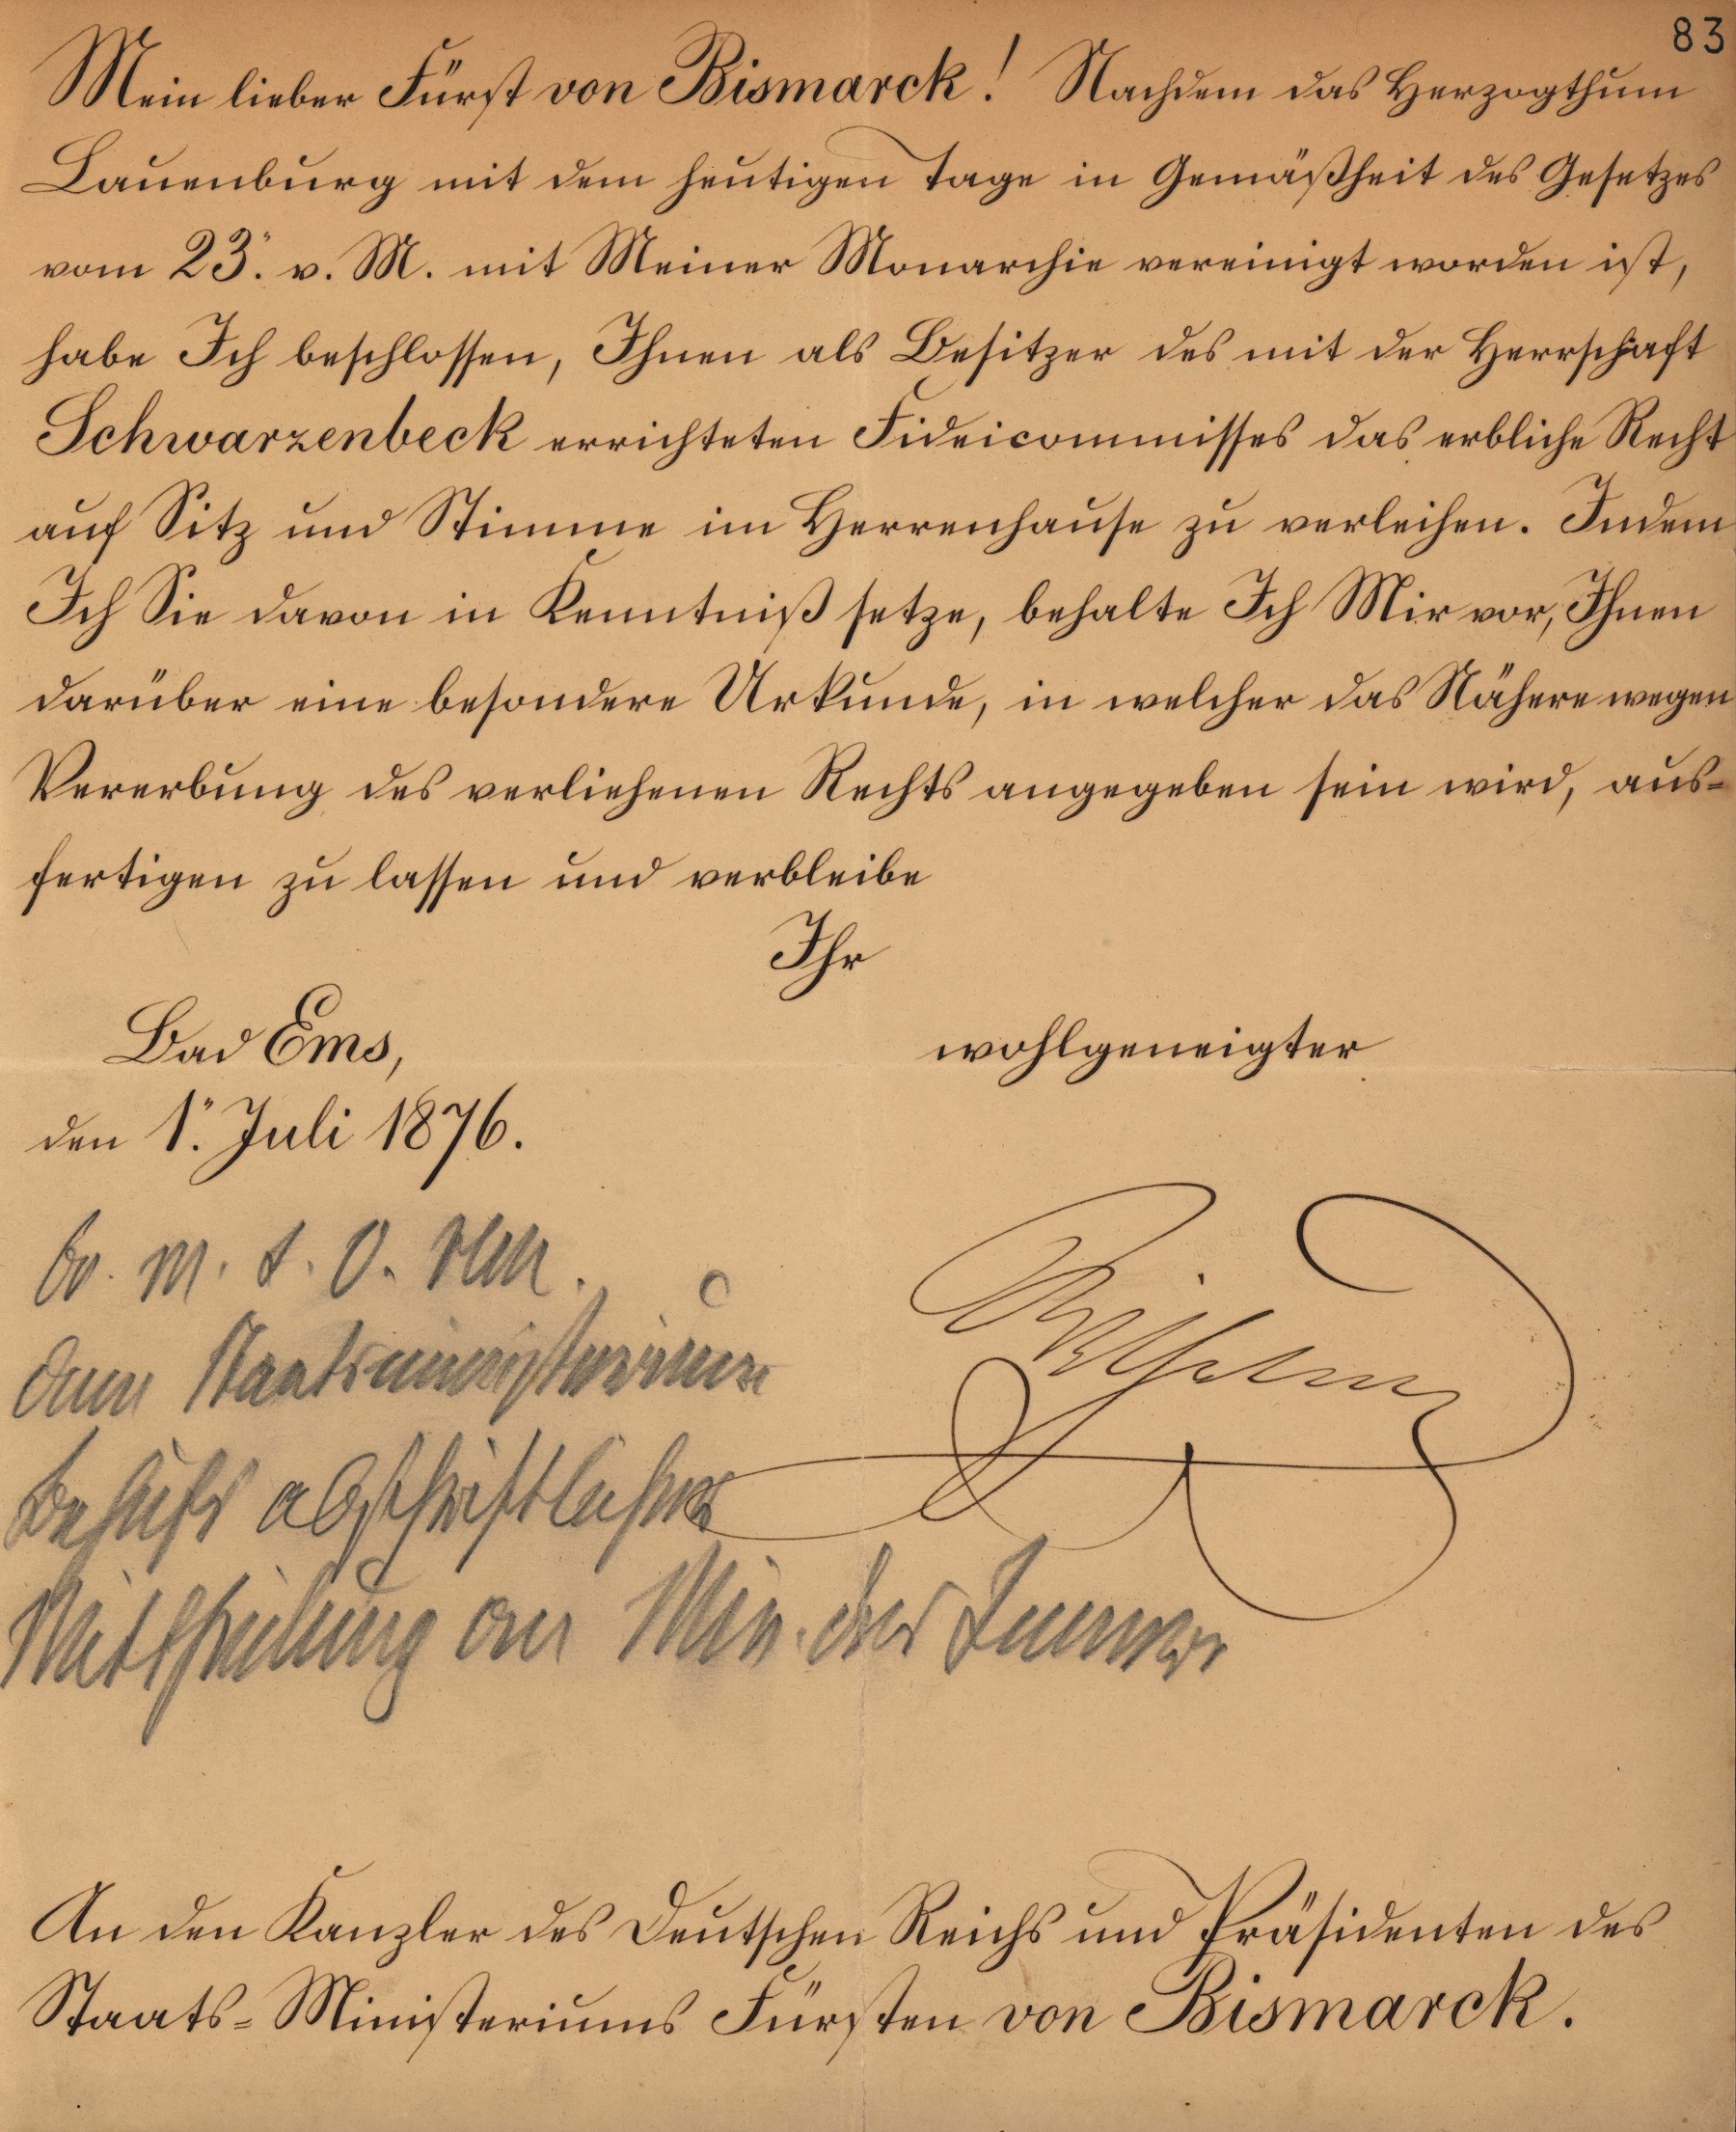 83
Mein lieber Fürst von Bismarck! Nachdem das Herzogthum
Lauenburg mit dem heutigen Tage in Gemäßheit des Gesetzes
vom 23. v. M. mit Meiner Monarchie vereinigt worden ist,
habe Ich beschlossen, Ihnen als Besitzer des mit der Herrschaft
Schwarzenbeck errichteten Fideicommisses das erbliche Recht
auf Sitz und Stimme im Herrenhause zu verleihen. Indem
Ich Sie davon in Kenntniß setze, behalte Ich Mir vor, Ihnen
darüber eine besondere Urkunde, in welcher das Nähere wegen
Vererbung des verliehenen Rechts angegeben sein wird, aus-
fertigen zu lassen und verbleibe
Ihr
wohlgeneigter
Bad Ems,
den 1. Juli 1876.
Wilhelm
dem Staatsministerium
behufs abschriftlicher
Mittheilung an Min. des Innern
An den Kanzler des Deutschen Reichs und Präsidenten des
Staats-Ministeriums Fürsten von Bismarck.